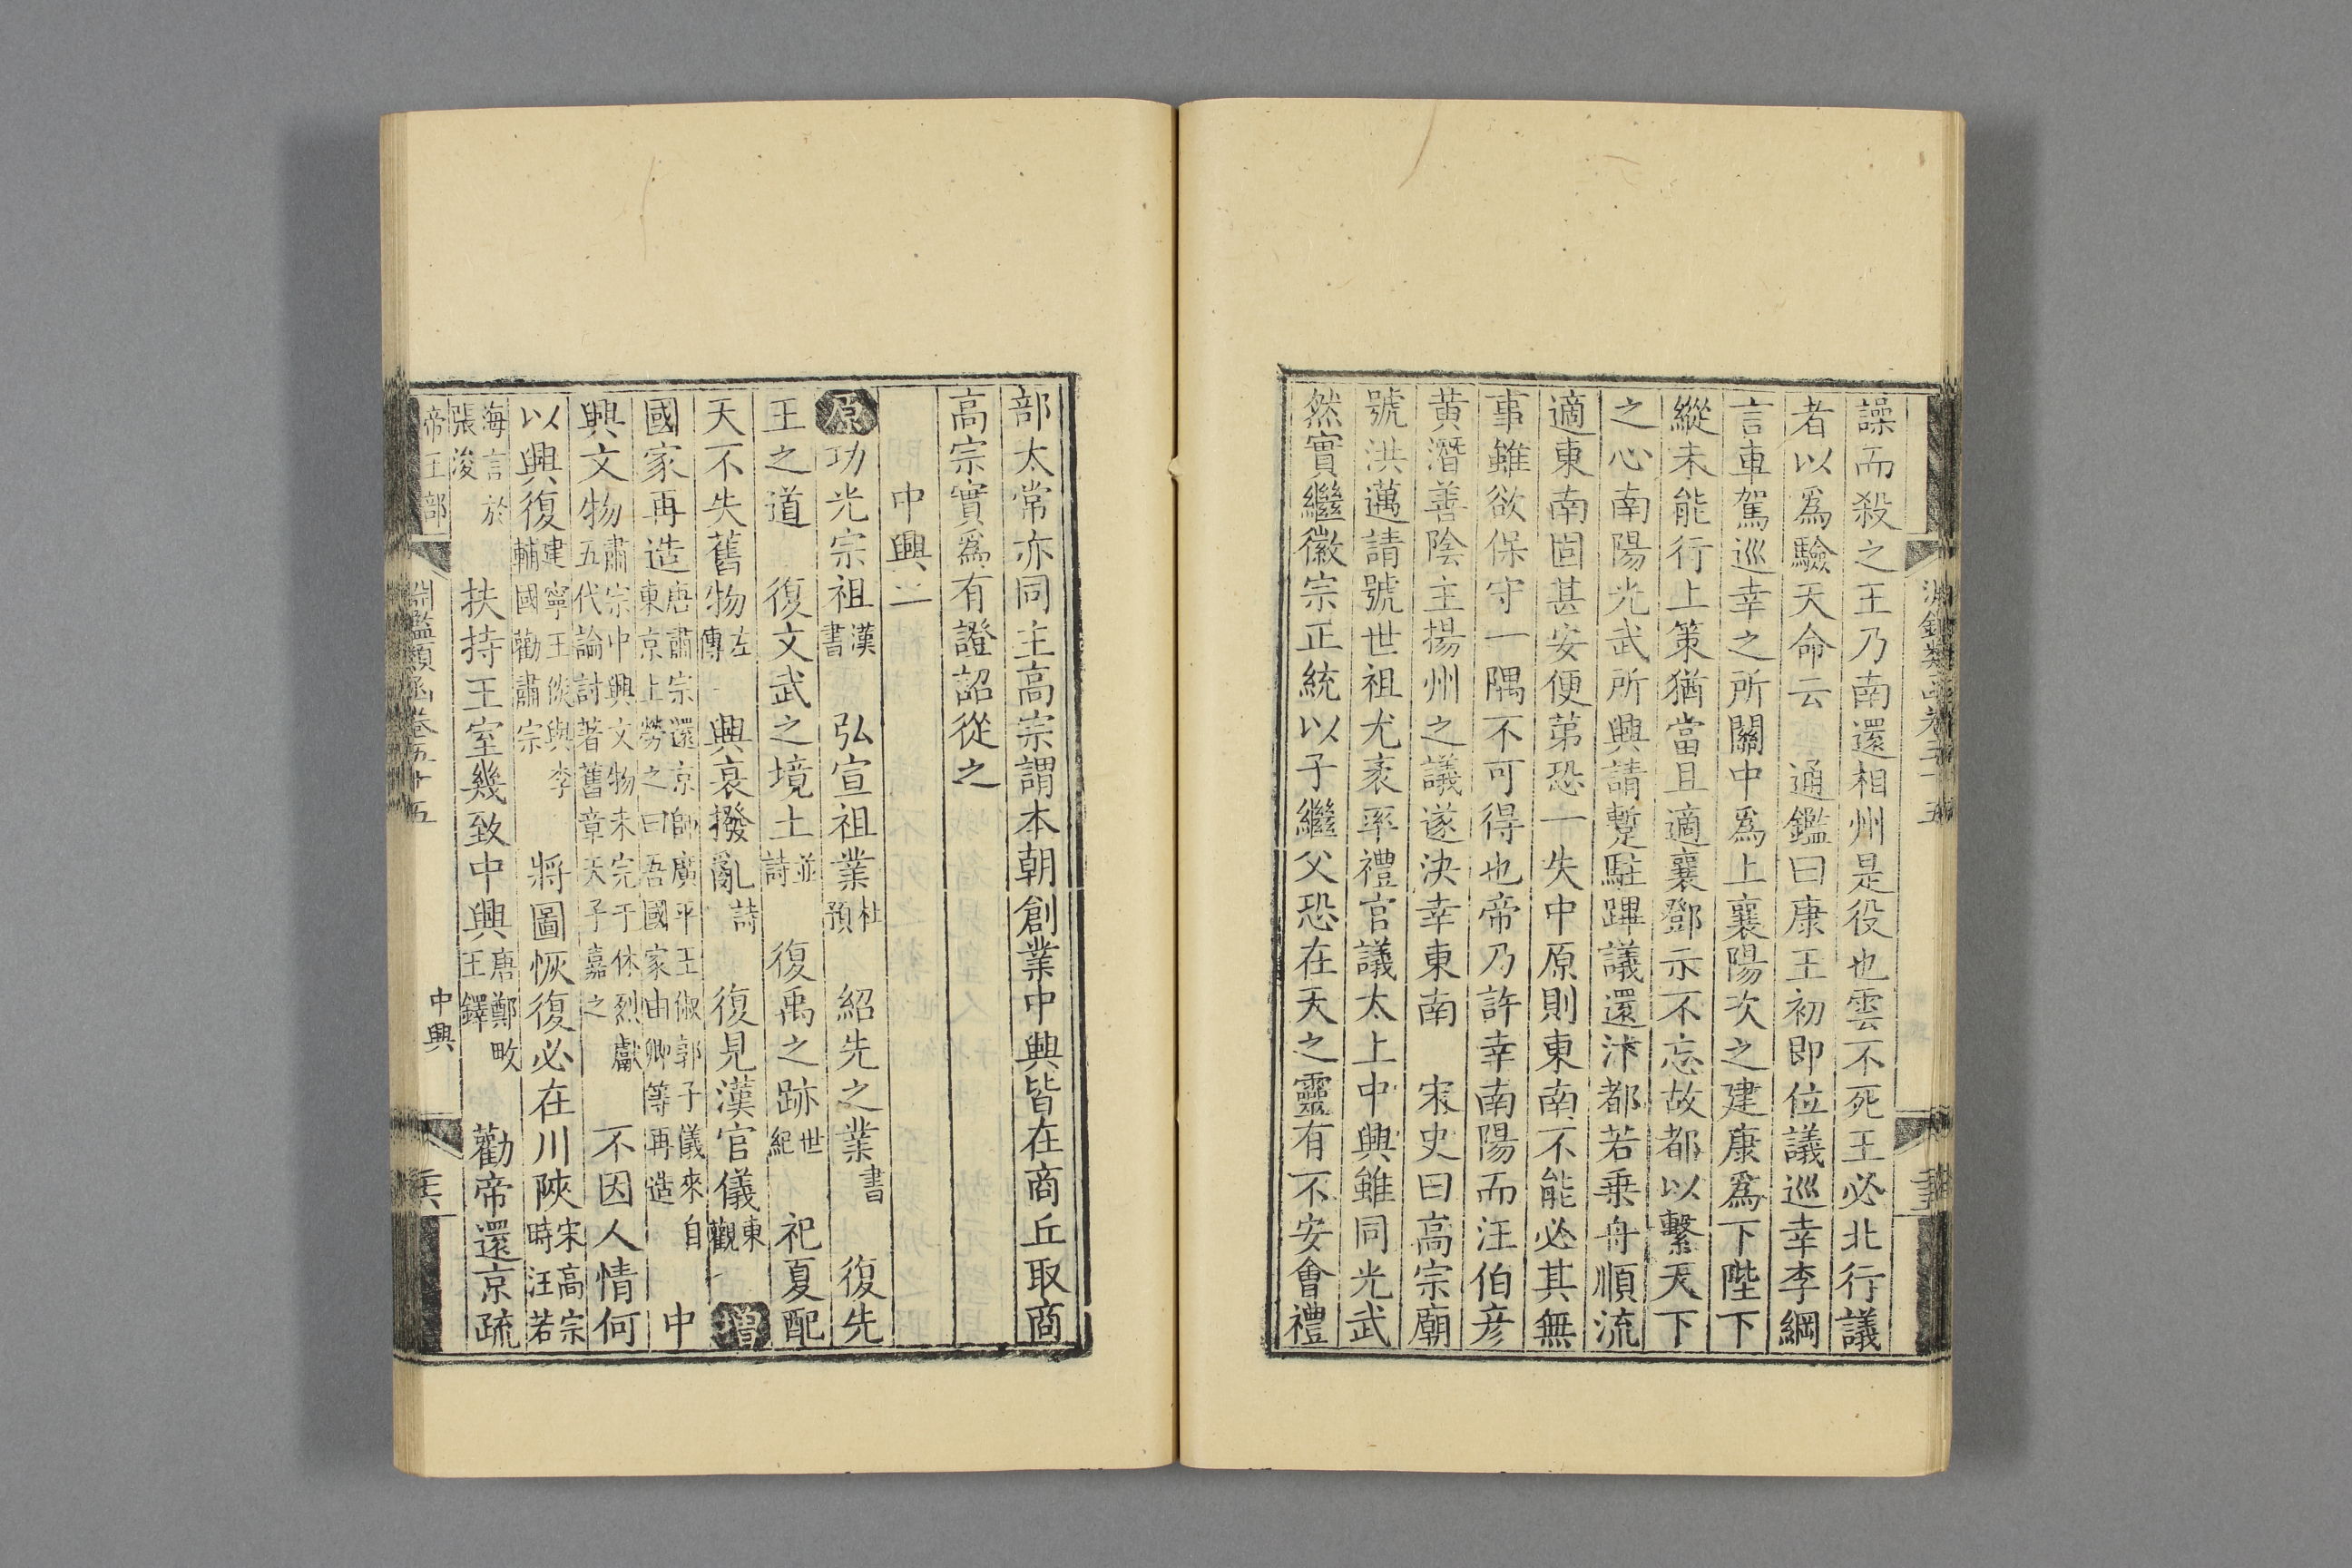 譟而殺之王乃南還相州是役也雲不死王必北行議
者以爲驗天命云 通鑑曰康王初即位議巡幸李綱
言車駕巡幸之所關中爲上襄陽次之建康爲下陛下
縱未能行上策猶當且適襄鄧示不忘故都以繫天下
之心南陽光武所興請蹔駐蹕議還汴都若乗舟順流
適東南固甚安便苐恐一失中原則東南不能必其無
事雖欲保守一隅不可得也帝乃許幸南陽而汪伯彦
黄潛善陰主揚州之議遂決幸東南 宋史曰高宗廟
號洪邁請號世祖尤袤率禮官議太上中興雖同光武
然實繼徽宗正統以子繼父恐在天之靈有不安會禮
部太常亦同主高宗謂本朝創業中興皆在商丘取商
高宗實爲有證詔從之
中興二
原功光宗祖漢書 弘宣祖業杜預 紹先之業書 復先
王之道 復文武之境土並詩 復禹之跡世紀 祀夏配
天不失舊物左傳 興衰撥亂詩 復見漢官儀東觀 增
國家再造唐肅宗還京師廣平王俶郭子儀來自東京上勞之曰吾國家由卿等再造 中
興文物肅宗中興文物未完于休烈獻五代論討著舊章天子嘉之 不因人情何
以興復建寧王倓與李輔國勸肅宗 將圖恢復必在川陝宋高宗時汪若
海言於張浚 扶持王室幾致中興唐鄭畋王鐸 勸帝還京疏
帝王部 淵鑑類函卷五十五 中興